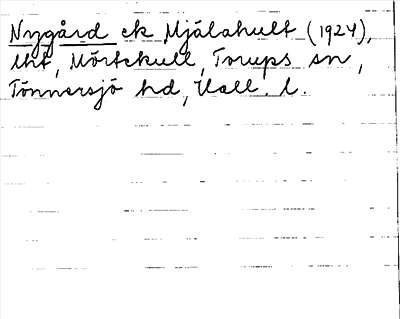 Nygård ek Mjälahult (1924),
lht, Mörtekull, Torups sn,
Tönnersjö hd, Hall. l.